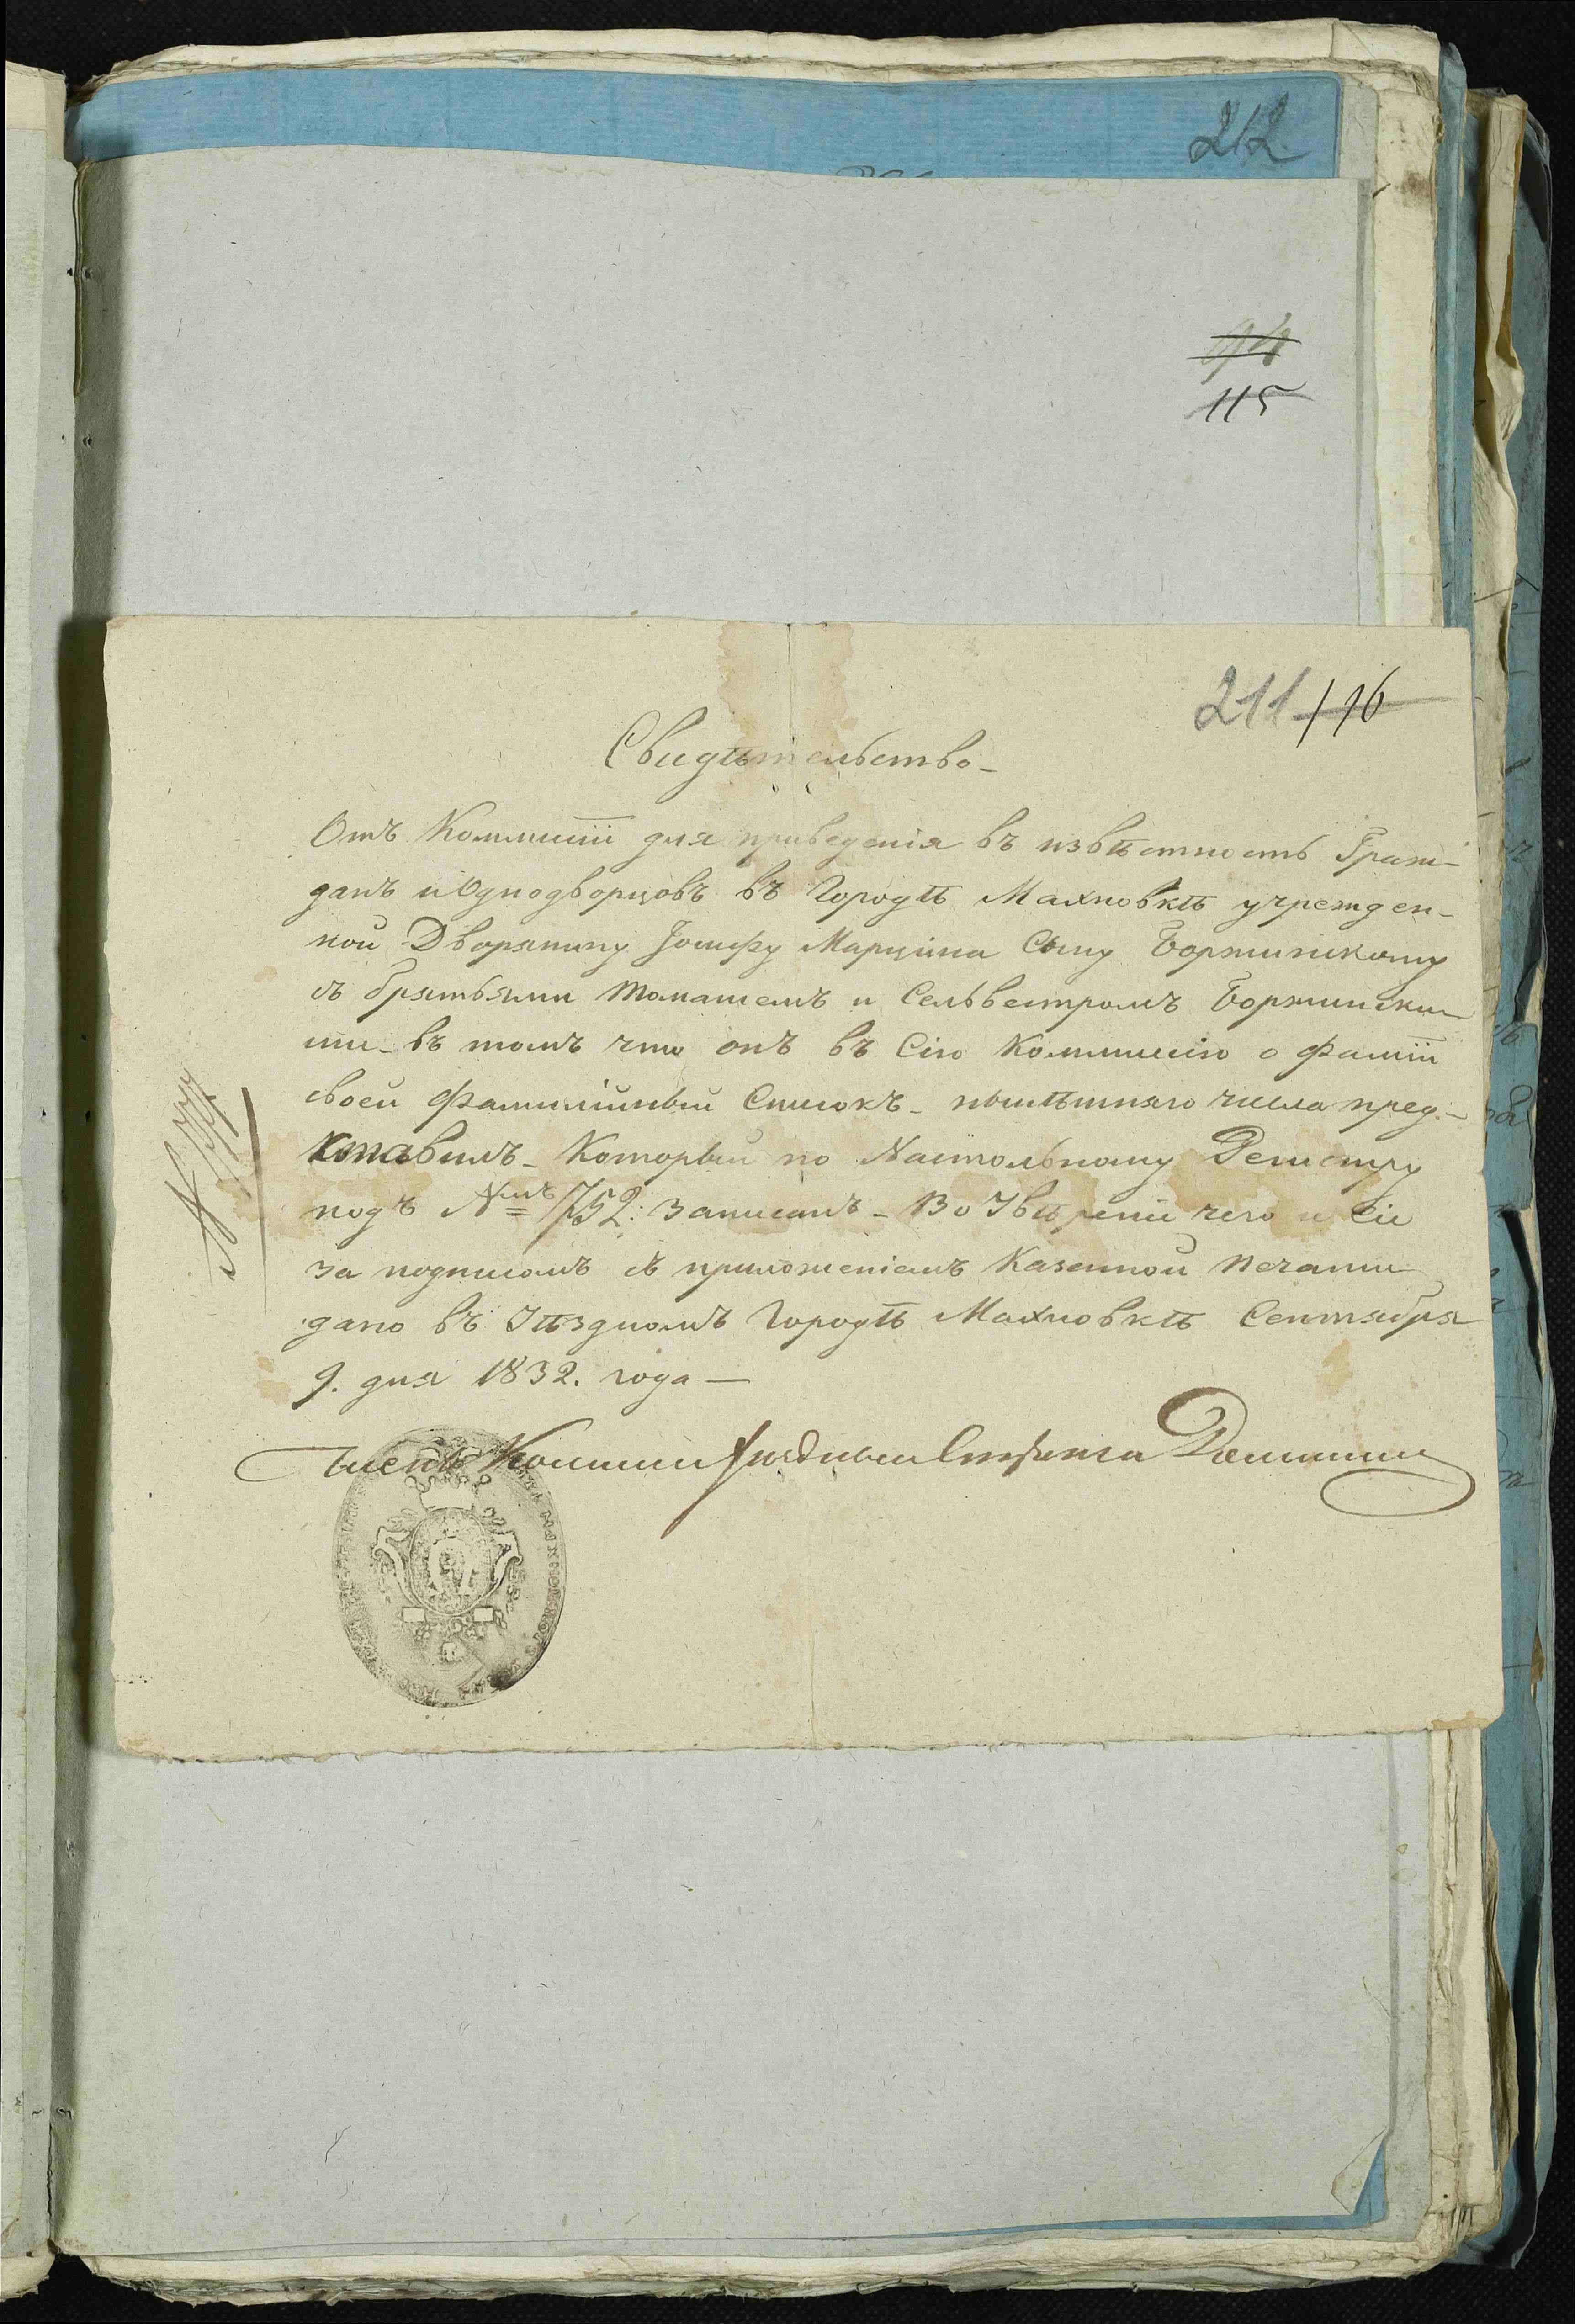 212
94
115
211 116
Свидѣтельство
Отъ Коммисіи для приведенія въ извѣстность Граж-
данъ и Однодворцовъ въ Городѣ Махновкѣ учрежден-
ной Дворянину Іосифу Марціина Сыну Боржинскому
съ братьями Томашемъ и Сельвестромъ Боржински
ми въ томъ что онъ въ Сію Коммисію о Фаміліи
своей Фамилійный Списокъ нынѣшняго числа пред-
ставилъ Который по Настольному Регистру
подъ №мъ 752: Записанъ Во Увѣреніи чего и Сіе
за подписомъ съ приложеніемъ Казенной печати
дано въ Уѣздномъ Городѣ Махновкѣ Сентября
9. дня 1832. года
Членъ Комисіи Уѣздный